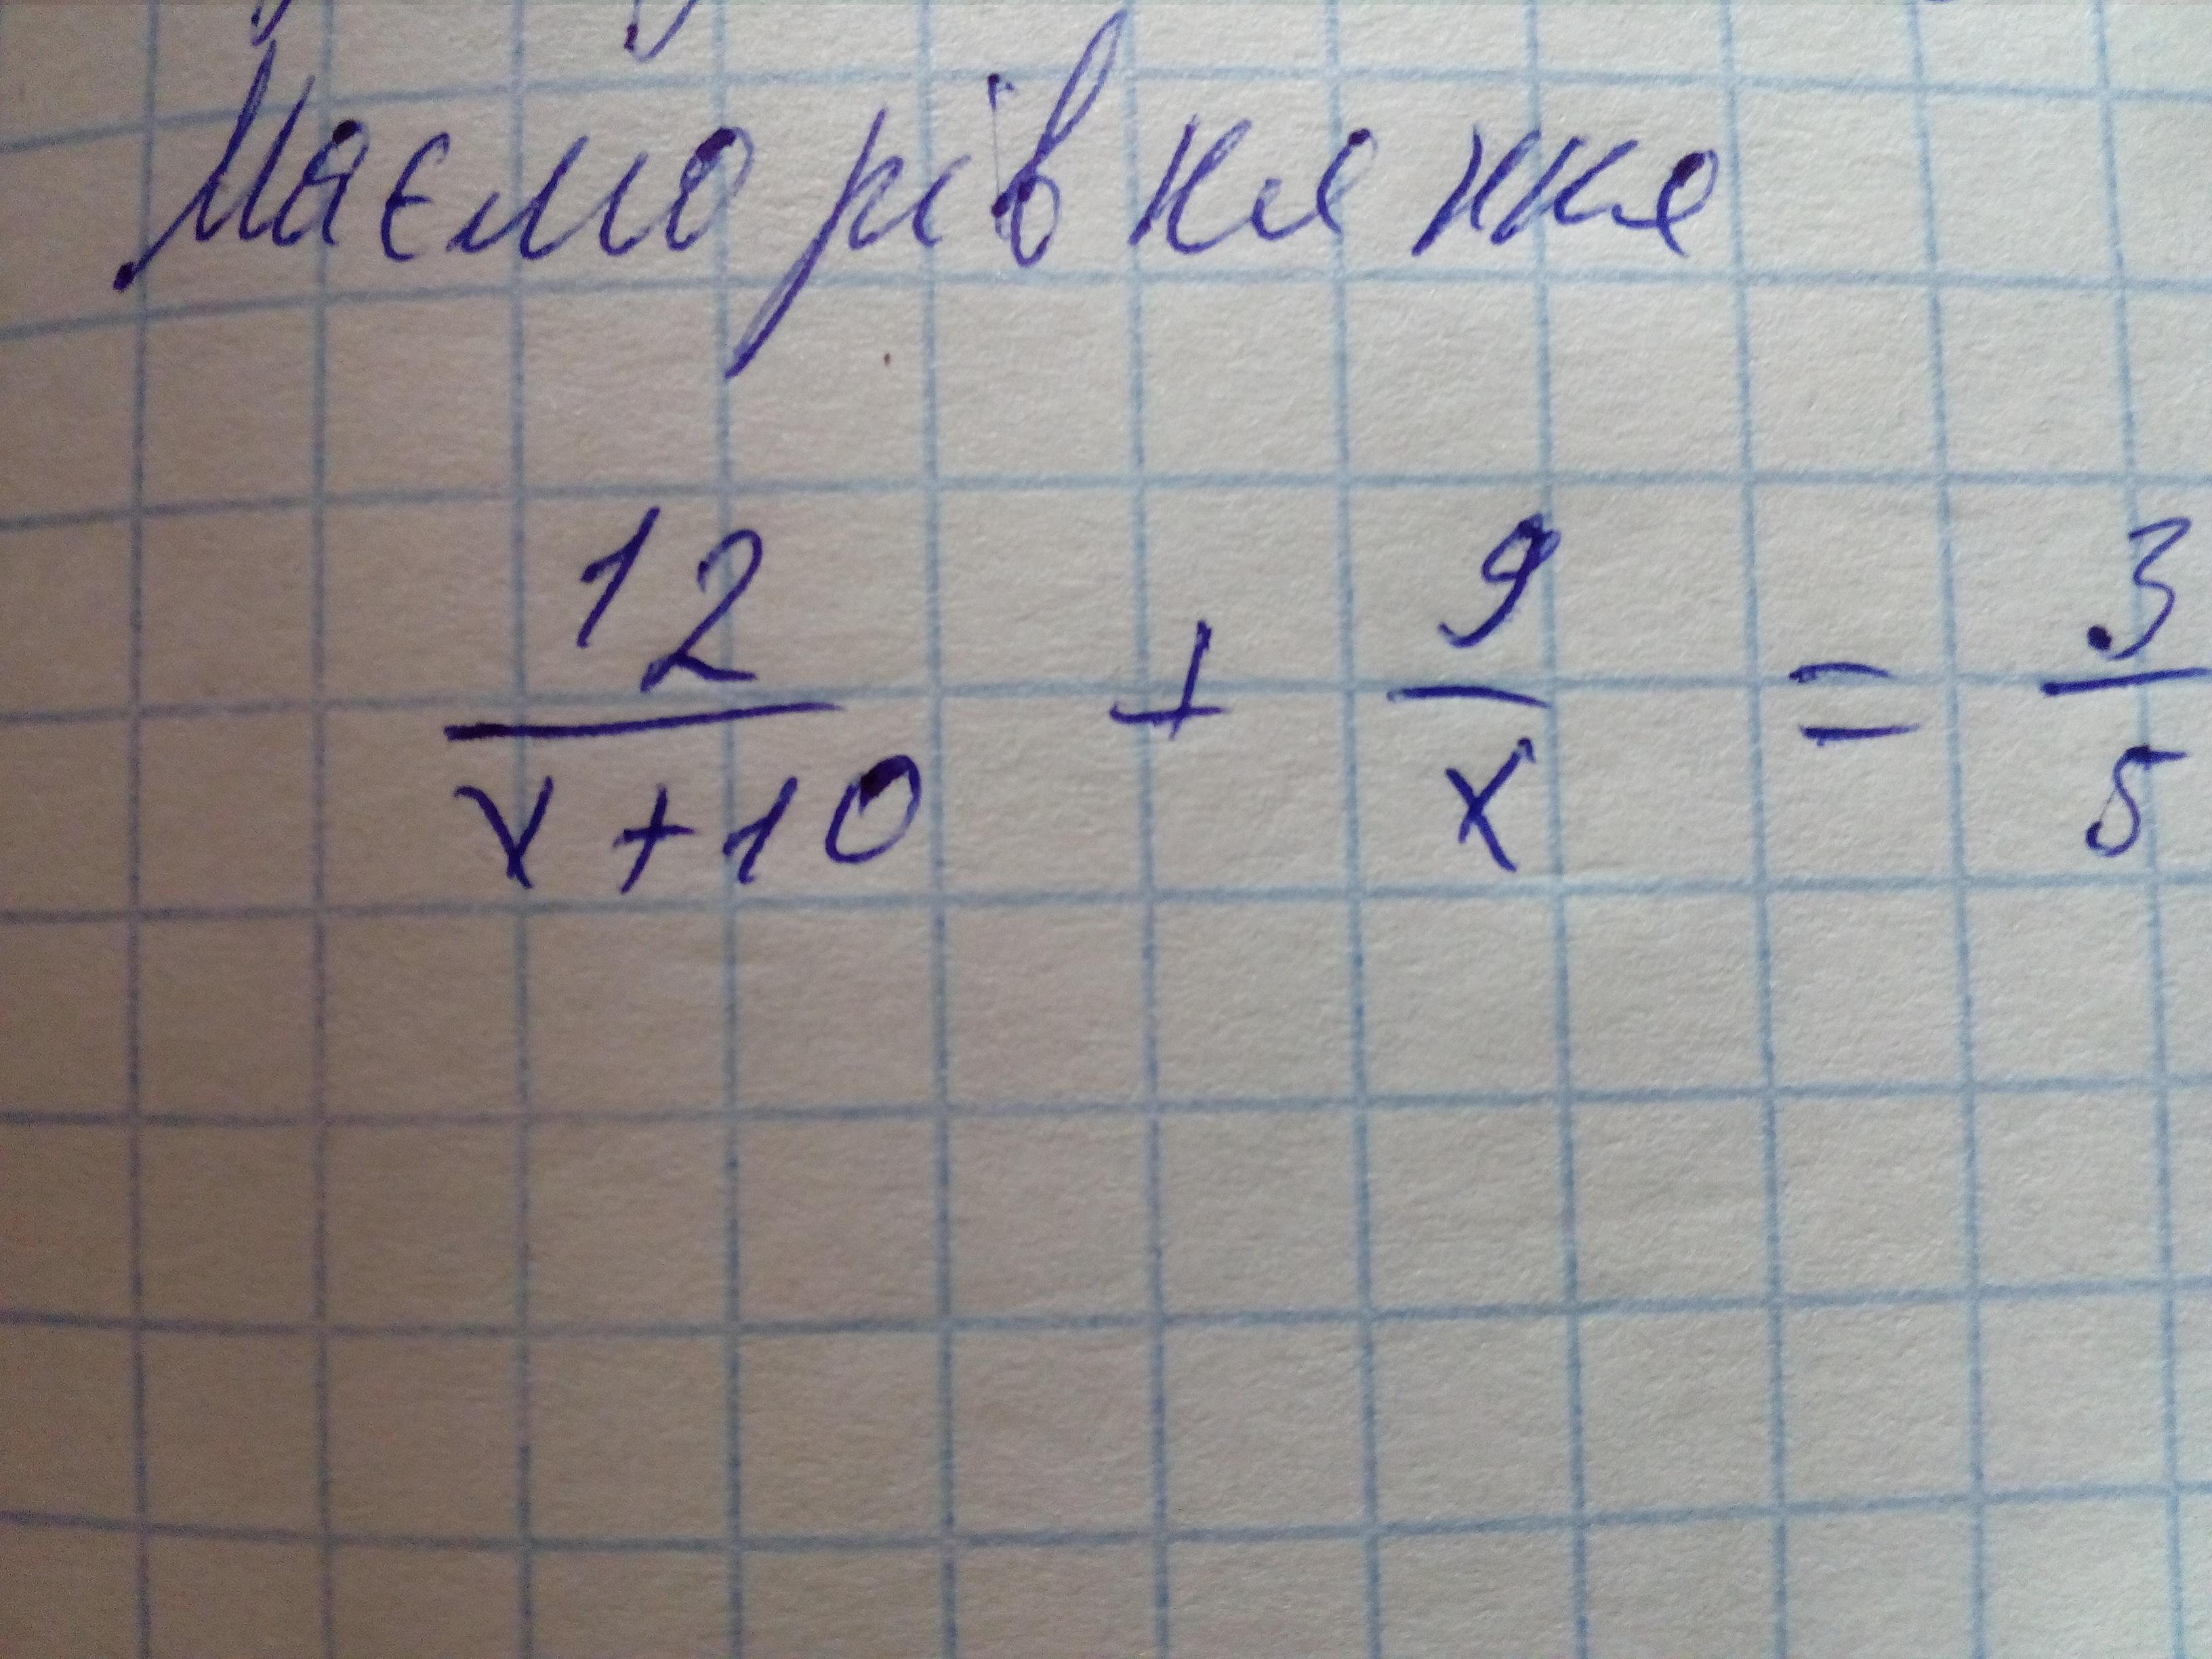 Маємо рівняння
12/(x+10) + 9/x = 3/5